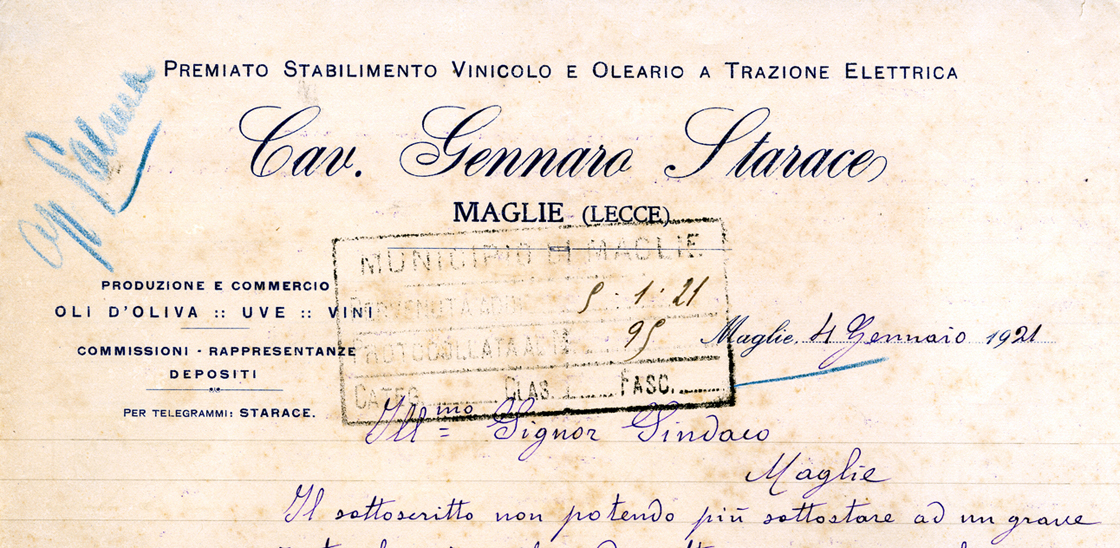 PREMIATO STABILIMENTO VINICOLO E OLEARIO A TRAZIONE ELETTRICA
Cav. Gennaro Starace
MAGLIE (LECCE)
MUNICIPIO DI MAGLIE
PERVENUTA ADDI 5.1.21
PROTOCOLLATA AL N. 95
CATEG. CLAS. I FASC.
PRODUZIONE E COMMERCIO
OLI D'OLIVA :: UVE :: VINI
COMMISSIONI - RAPPRESENTANZE
DEPOSITI
PER TELEGRAMMI: STARACE.
Maglie, 4 Gennaio 1921
Ill.mo Signor Sindaco
Maglie
Il sottoscritto non potendo più sottostare ad un grave